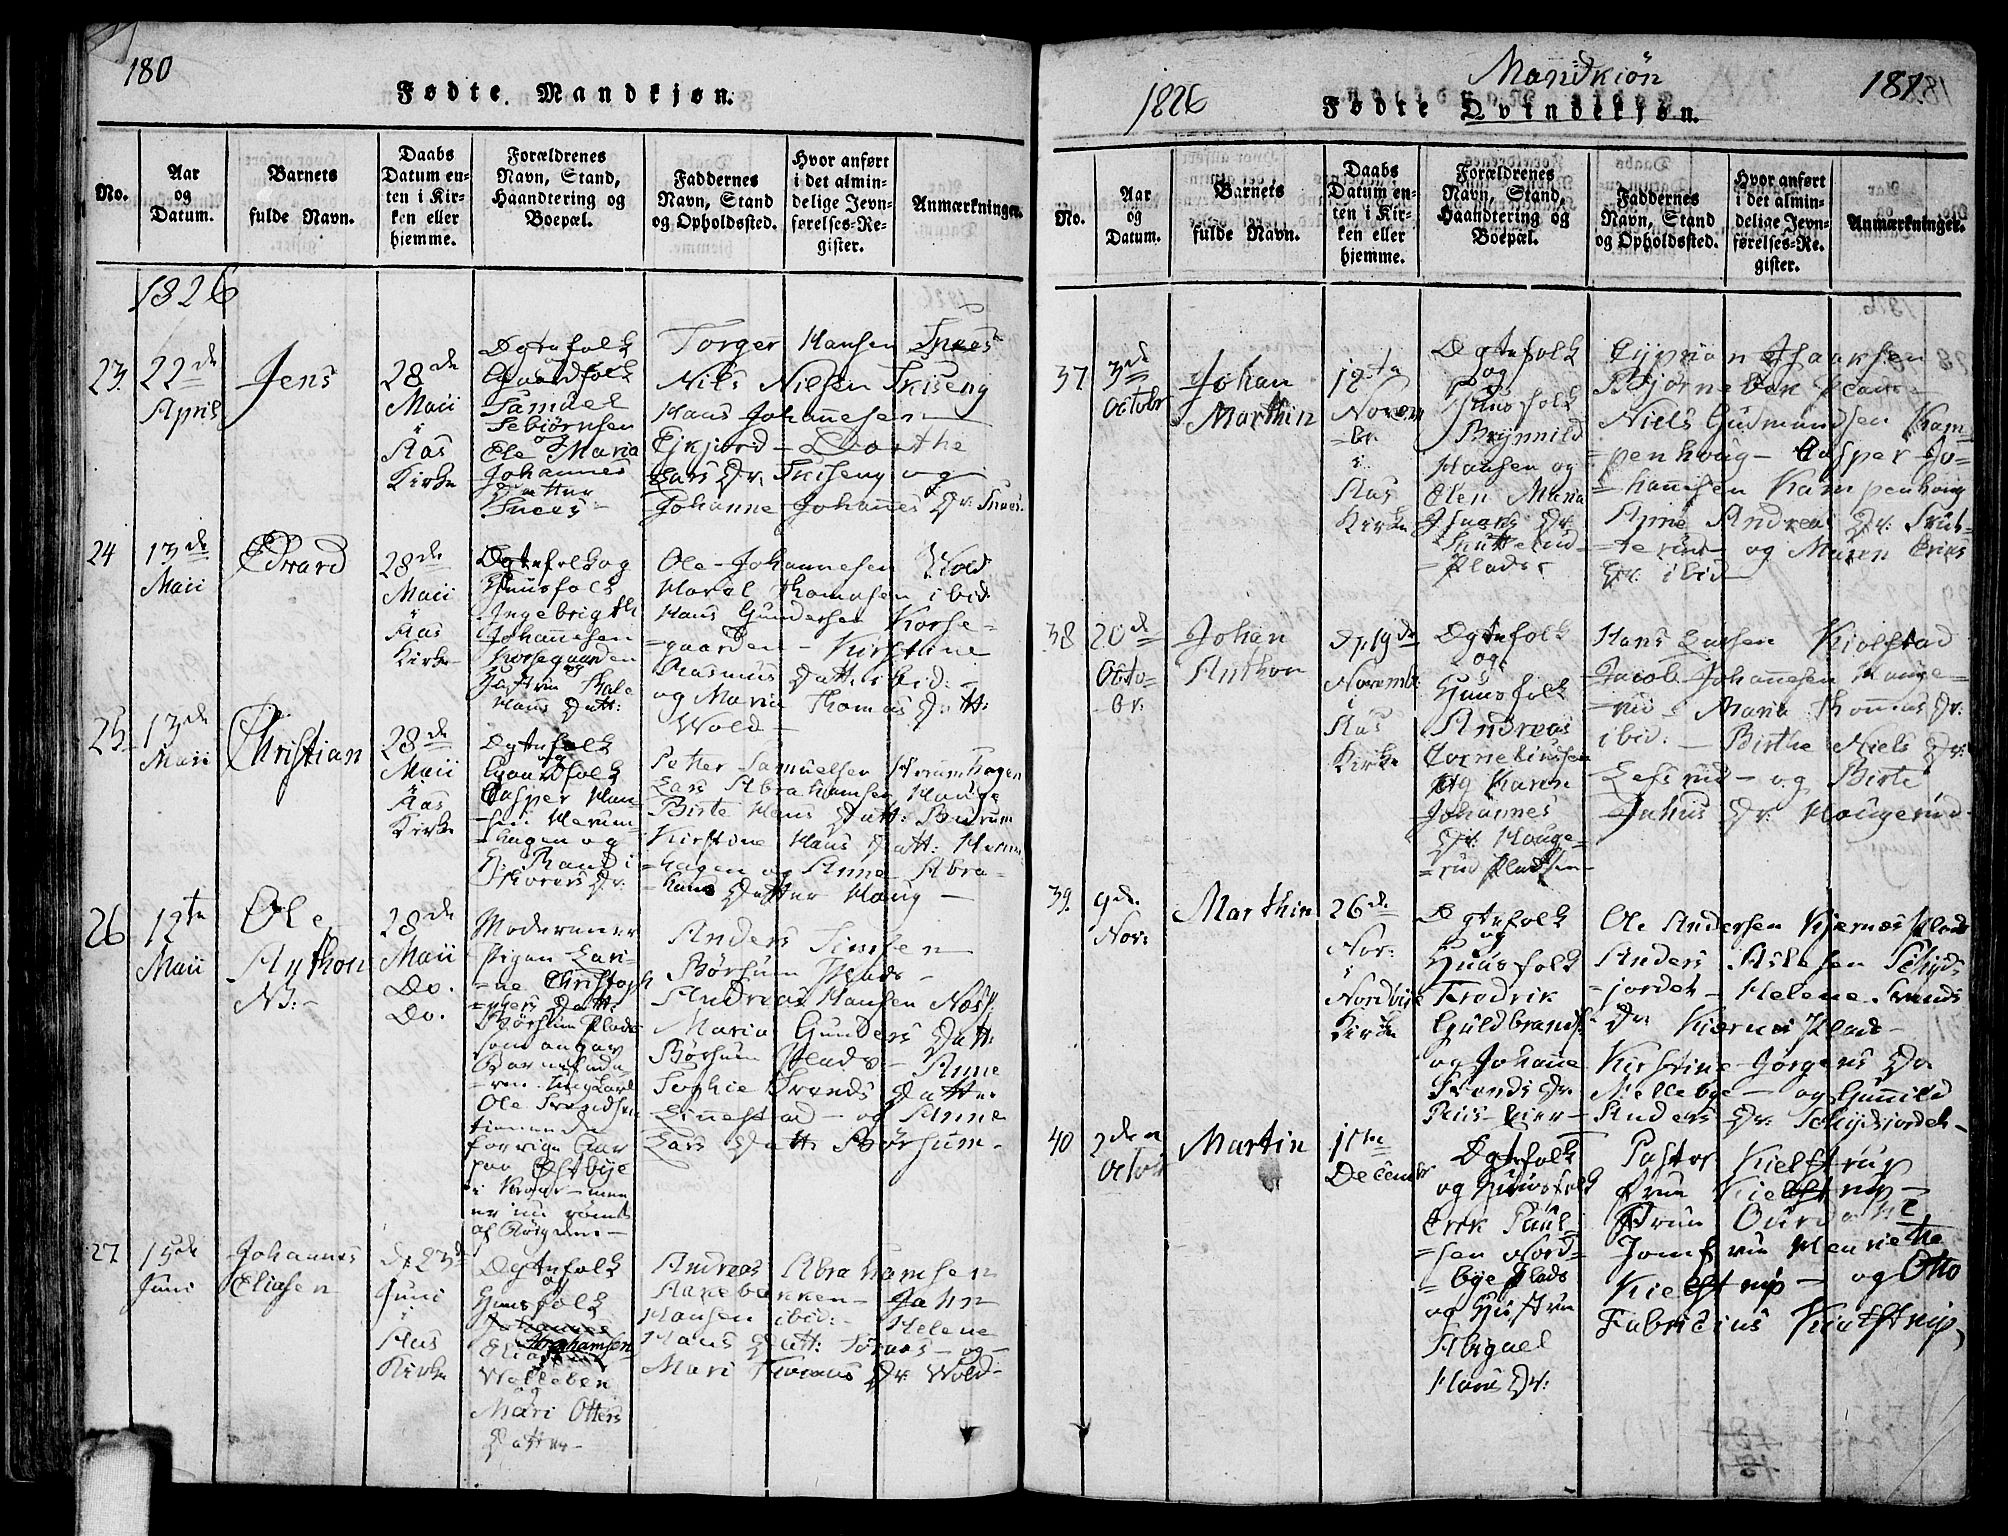 180
Fødte Mandkjøn.
No.
Aar
og
Datum.
Barnets
fulde Navn.
Daabs
Datum en-
ten i Kir-
ken eller
hjemme.
Forældrenes
Navn, Stand,
Haandtering og
Boepæl.
Faddernes
Navn, Stand
og Opholdssted.
Hvor anført
i det almin-
delige Jevn-
førelses-Re-
gister.
Anmærkninger.
1826
23.
22de
April
Jens
28de
Maii
i
Aas
Kirke
Ægtefolk
og
Gaardfolk
Samuel
Ole Maria
Johannes
Datter
Snees
Torger Hansen Snees
Nils Nielsen Skiseng
Hans Johannesen
Ejkjord - Dorthe
Lars Dr. Skiseng og
Johanne Johannes Dr. Snees
24
13de
Maii
Edvard
28de
Maii
i
Aas
Kirke
Ægtefolk og
Huusfolk
Ingebrigth
Johannesen
Korsegaarden
og
Hustru Thale
Hans Datt:
Ole Johannesen Wold
Haral Thomasen ibid
Hans Gundersen Korse-
=gaarden - Kirstine
Rasmus Datt: ibid: -
og Maria Thomas Datt:
Wold -
25.
13de
Maii
Christian
28de
Maii
i
Aas
Kirke
Ægtefolk
og
Gaardfolk
Casper Han-
sen Herum-
=hagen og
H: Randi
Dr.
Petter Samuelsen Herumhagen
Lars Abrahamsen Hauge
Birte Hans Datt: Burum
Kirstine Hans Datt: Herum
=hagen og Anne Abra-
=hams Datter Haug -
26
12te
Maii
Ole
Anthon
NB: -
28de
Maii
Do.
Do.
Moderen er
Pigen Lari-
=ne Christoph
=phers Datt:
Børsum Plads
som angav
Barnefade-
=ren Ungkarl
Ole Trondsen
tienende
forrige Aar
paa Østbye
i Kroer - men
er nu rømt
af Bøigden -
Anders Simsen
Børsum Plads -
Andreas Hansen Næss
Maria Gunders Datt:
Børsum Plads - Anne
Sophie Tronds Datter
Linnestad - og Anne
Lars Datt: Børsum -
27
15de
Juni
Johannes
Eliasen
D. 23de
Juni
i
Aas
Kirke
Ægtefolk
og
Huusfolk
Johannes
Elias Abrahamsen
Welleben
og
Mari Otters
Datter -
Andreas Abrahamsen
Aarebakken - Jahn
Hansen ibid: - Helene
Hans Datt: Toraas - og -
Mari Thomas Dr. Wold -
1826
Mandkiøn
Fødte Qvindekjøn.
181.
No.
Aar
og
Datum.
Barnets
fulde Navn.
Daabs
Datum en-
ten i Kir-
ken eller
hjemme.
Forældrenes
Navn, Stand,
Haandtering og
Boepæl.
Faddernes
Navn, Stand
og Opholdssted.
Hvor anført
i det almin-
delige Jevn-
førelses-Re-
gister.
Anmærkninger.
37
3de
Octobr
Johan
Marthin
12te
Novem
=br.
i
Aas
Kirke
Ægtefolk
og
Huusfolk
Brynnild
Hansen og
Olen Maria
Isaacs Dr.
=Plads
Cyprian Isaacsen
Bjørnebek Plads
Niels Gudmundsen Kam-
=penhoug - Casper Jo-
=hannesen Kampenhoug
Anne Andreas Dr.
=terud og Maren Eries
Dr. ibid
38
20de
Octo-
=br.
Johan
Anthon
D. 19de
Novembr
i
Aas
Kirke
Ægtefolk
og
Huusfolk
Andreas
Corneliussen
og Karen
Johannes
Dr. Houge-
=rud Pladsen -
Hans Larsen Kiolstad
Jacob Johannesen Houge-
=rud - Maria Thomas Dr:
ibid: - Birthe Niels Dr.
og Birte
Dr. Hougerud -
39.
9de
Nov:
Marthin
26de
Nov:
i
Nordbye
Kirke
Ægtefolk
og
Huusfolk
Fredrik
Guldbrands:
og Johanne
Tronds Dr.
Ole Andersen Kjernæs Plads
Anders Aslesen Schyds-
=jordet - Helene Trends
Dr. Kiærnes Plads -
Kirstine Jørgens Dr.
Mellebye - og Gunnild
Anders Dr. Schydsjordet -
40
2den
Octobr
Martin
1ste
Decembr
Ægtefolk
og Huusfolk
Erik Paul-
=sen Nord=
=bye Plads
og Hustrue
Abigael
Hans Dr:
Pastor Kielstrup
Frue Kielstrup -
Frue
Jomfrue Henriette
Kielstrup - og Otto
Fabricius Kielstrup,